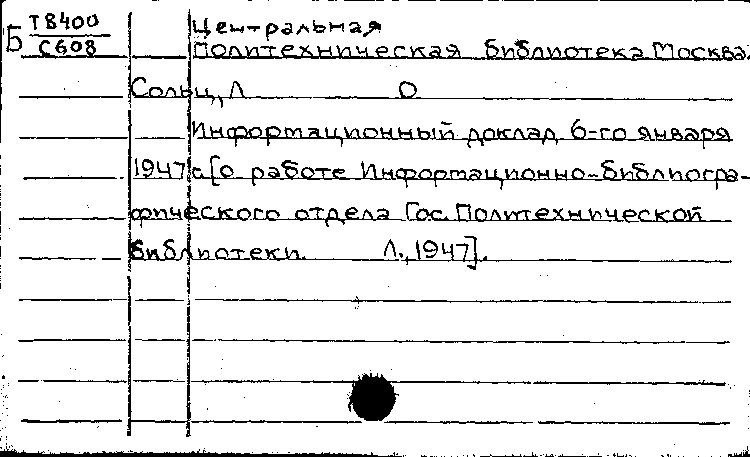 Б Т8400 Центральная
С608 Политехническая библиотека Москва.
Сольц, Л О
Информационный доклад 6-го января
1947 г. [о работе Информационно-библиогра-
фического отдела Гос. Политехнической
библиотеки. Л., 1947].